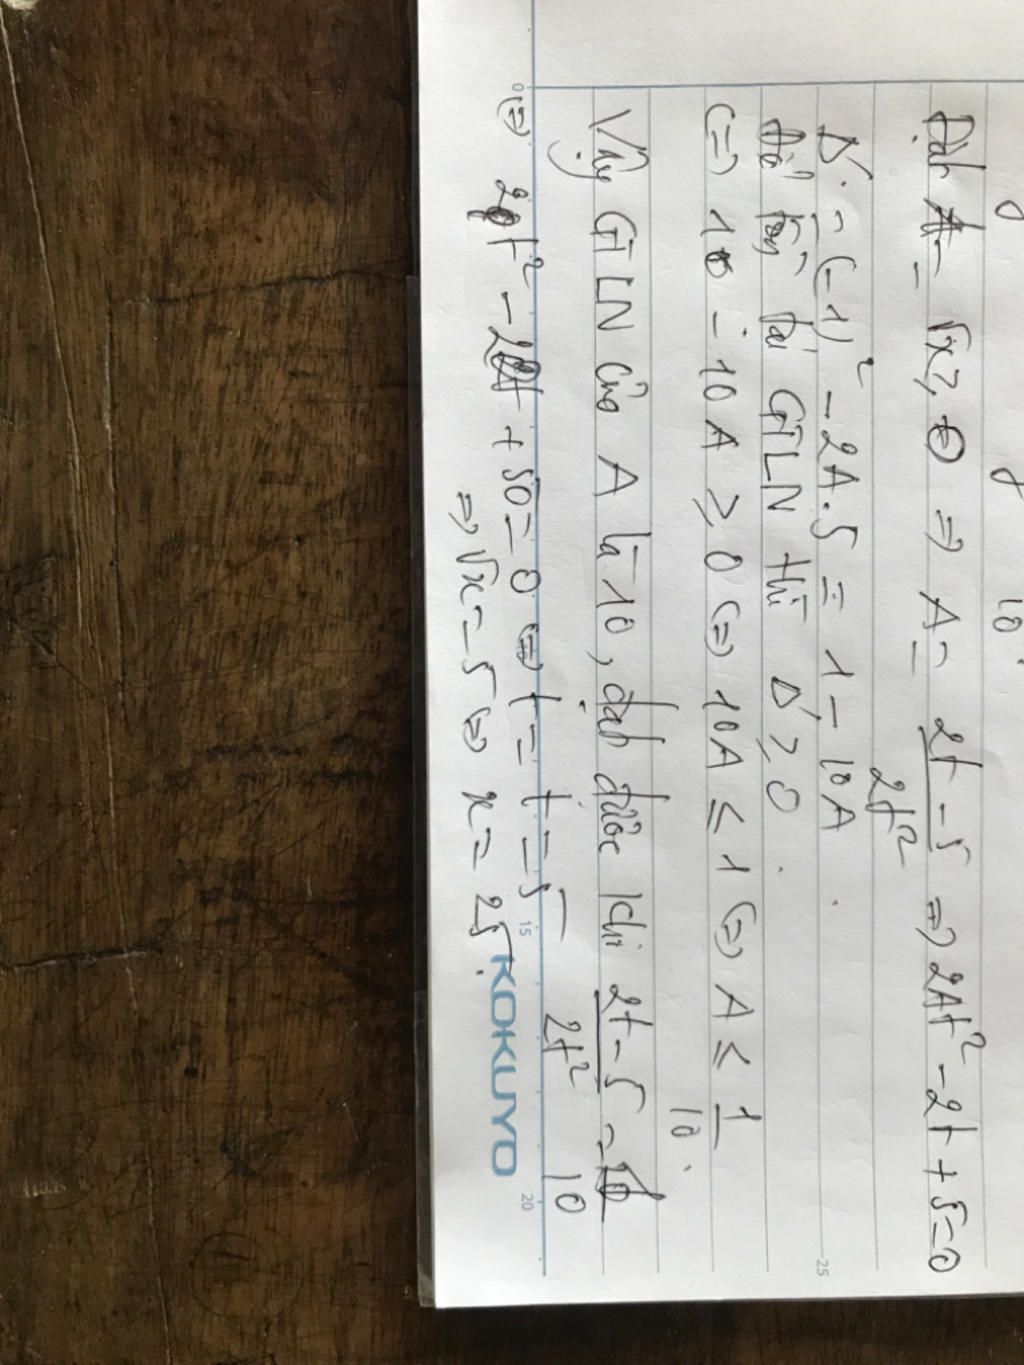 10
Đặt t = √x ≥ 0 => A = 2t - 5 / 2t² => 2At² - 2t + 5 = 0
Δ' = (-1)² - 2A.5 = 1 - 10A
25
Để tồn tại GTLN thì Δ' ≥ 0.
(=) 1 - 10A ≥ 0 (=) 10A ≤ 1 (=) A ≤ 1/10.
Vậy GTLN của A là 10, đạt được khi 2t - 5 / 2t² = 1/10
0 15 20
(=) 2t² - 20t + 50 = 0 (=) t = t = 5
=> √x = 5 (=) x = 25.
KOKUYO